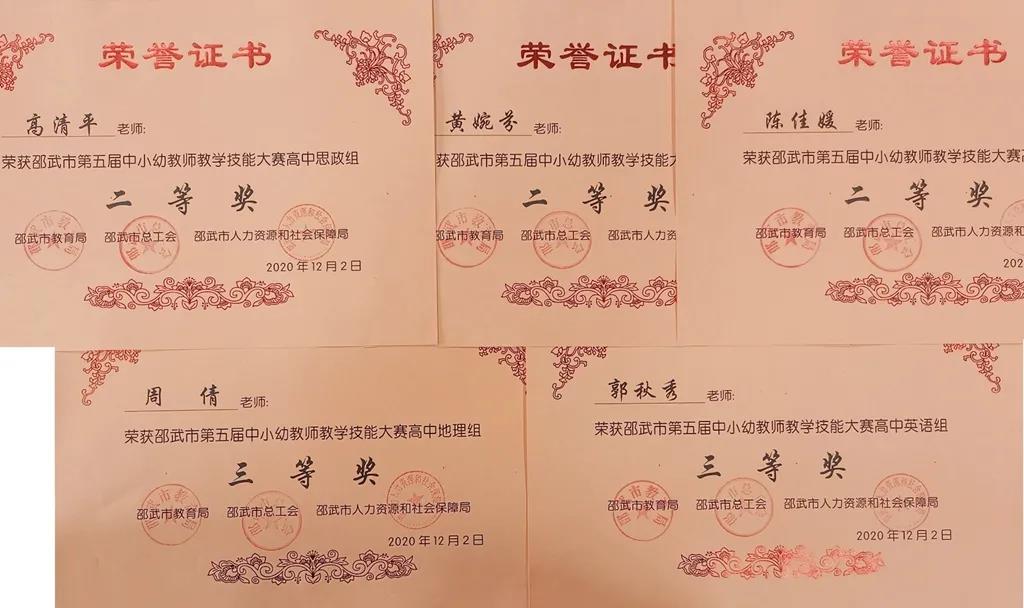 荣誉证书
高清平 老师:
荣获邵武市第五届中小幼教师教学技能大赛高中思政组
二等奖
邵武市教育局 邵武市总工会 邵武市人力资源和社会保障局
2020年12月2日
荣誉证书
黄婉芬 老师:
荣获邵武市第五届中小幼教师教学技能
二等奖
邵武市教育局 邵武市总工会 邵武市人力资
荣誉证书
陈佳媛 老师:
荣获邵武市第五届中小幼教师教学技能大赛
二等奖
邵武市教育局 邵武市总工会 邵武市人力资源和
202
周倩 老师:
荣获邵武市第五届中小幼教师教学技能大赛高中地理组
三等奖
邵武市教育局 邵武市总工会 邵武市人力资源和社会保障局
2020年12月2日
郭秋秀 老师:
荣获邵武市第五届中小幼教师教学技能大赛高中英语组
三等奖
邵武市教育局 邵武市总工会 邵武市人力资源和社会保障局
2020年12月2日